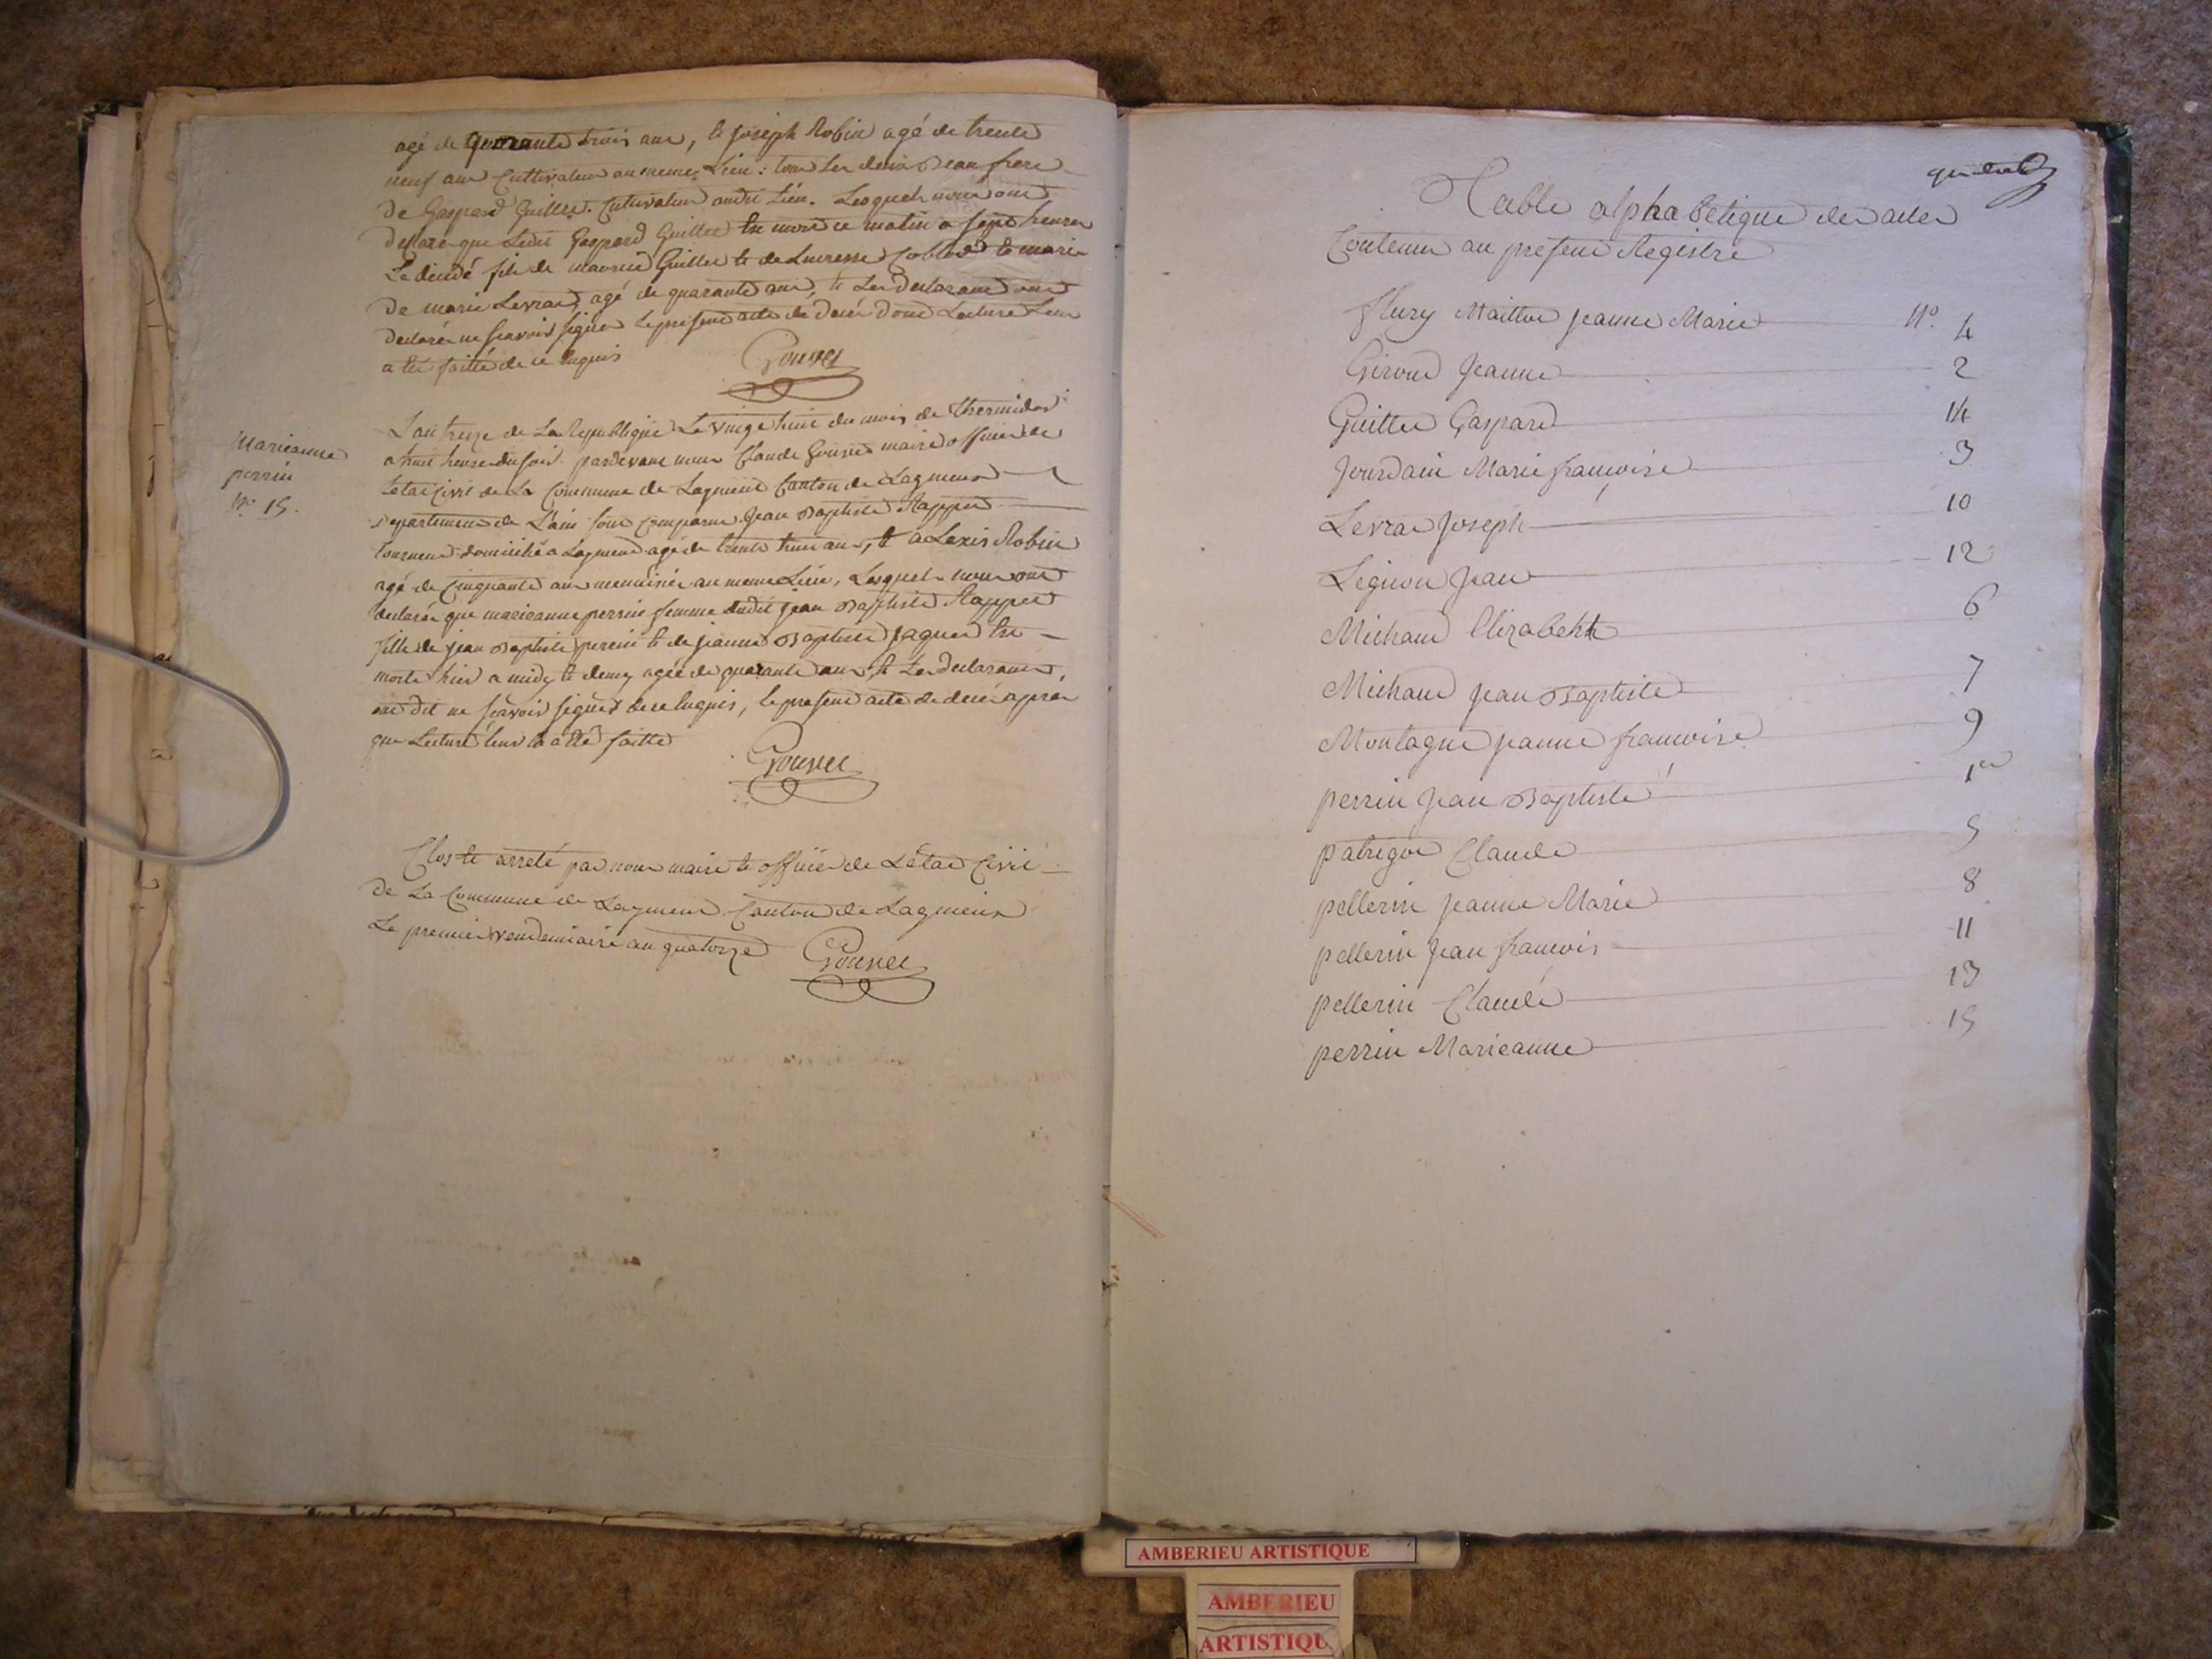 agé de quarante trois ans, et joseph Robin agé de trente
neuf ans Cultivateur au meme Lieu : tous les deux Beau frere
De Gaspard Guillet Cultivateur audit Lieu. Lesquels nous ont
declaré que Ledit Gaspard Guillet est mort ce matin a sept heures
Le decédé fils de maurice Guillet et de Lucresse et mari
De marie Levrat, agé de quarante ans, et Les declarants ont
declaré ne scavoir signer le present acte de decés dont Lecture Leur
a été faitte de ce Requis
Gouvet
Marieanne
perrin
N° 15.
L'an treize de La Republique Le vingt huit du mois de thermidor
a huit heures du soir pardevant nous Claude Gouvet maire officier de
Letat Civil de La Commune de Lagnieu Canton de Lagnieu
Departement de L'ain sont Comparus Jean Baptiste Rappet
tourneur domicilié a Lagnieu agé de trente huit ans, et aLexis Robin
agé de Cinquante ans menuisier au meme Lieu, Lesquels nous ont
declaré que marieanne perrin femme dudit jean Baptiste Rappet
fille de jean Baptiste perrin et de jeanne Baptiste jaquet est
morte hier a midy et demy agée de quarante ans, et Les declarants,
ont dit ne scavoir signer de ce Requis, le present acte de decés apres
que Lecture leur a été faitte
Gouvet
Clos et arreté par nous maire et officier de L'état Civil
de La Commune de Lagnieu Canton de Lagnieu
Le premier vendemiaire an quatorze
Gouvet
Table alphabétique des actes
Contenus au present Registre
fleury Maitton jeanne Marie N°. 4
Giroud Jeanne 2
Guillet Gaspard 14
Jourdain Marie françoise 3
Levrat Joseph 10
Legion Jean 12
Michaud Elizabeht 6
Michaud Jean Baptiste 7
Montagne jeanne francoise 9
perrin Jean Baptiste 1er
patrigot Claude 5
pellerin jeanne Marie 8
pellerin Jean francois 11
pellerin Claude 13
perrin Marieanne 15
AMBERIEU ARTISTIQUE
AMBERIEU
ARTISTIQU